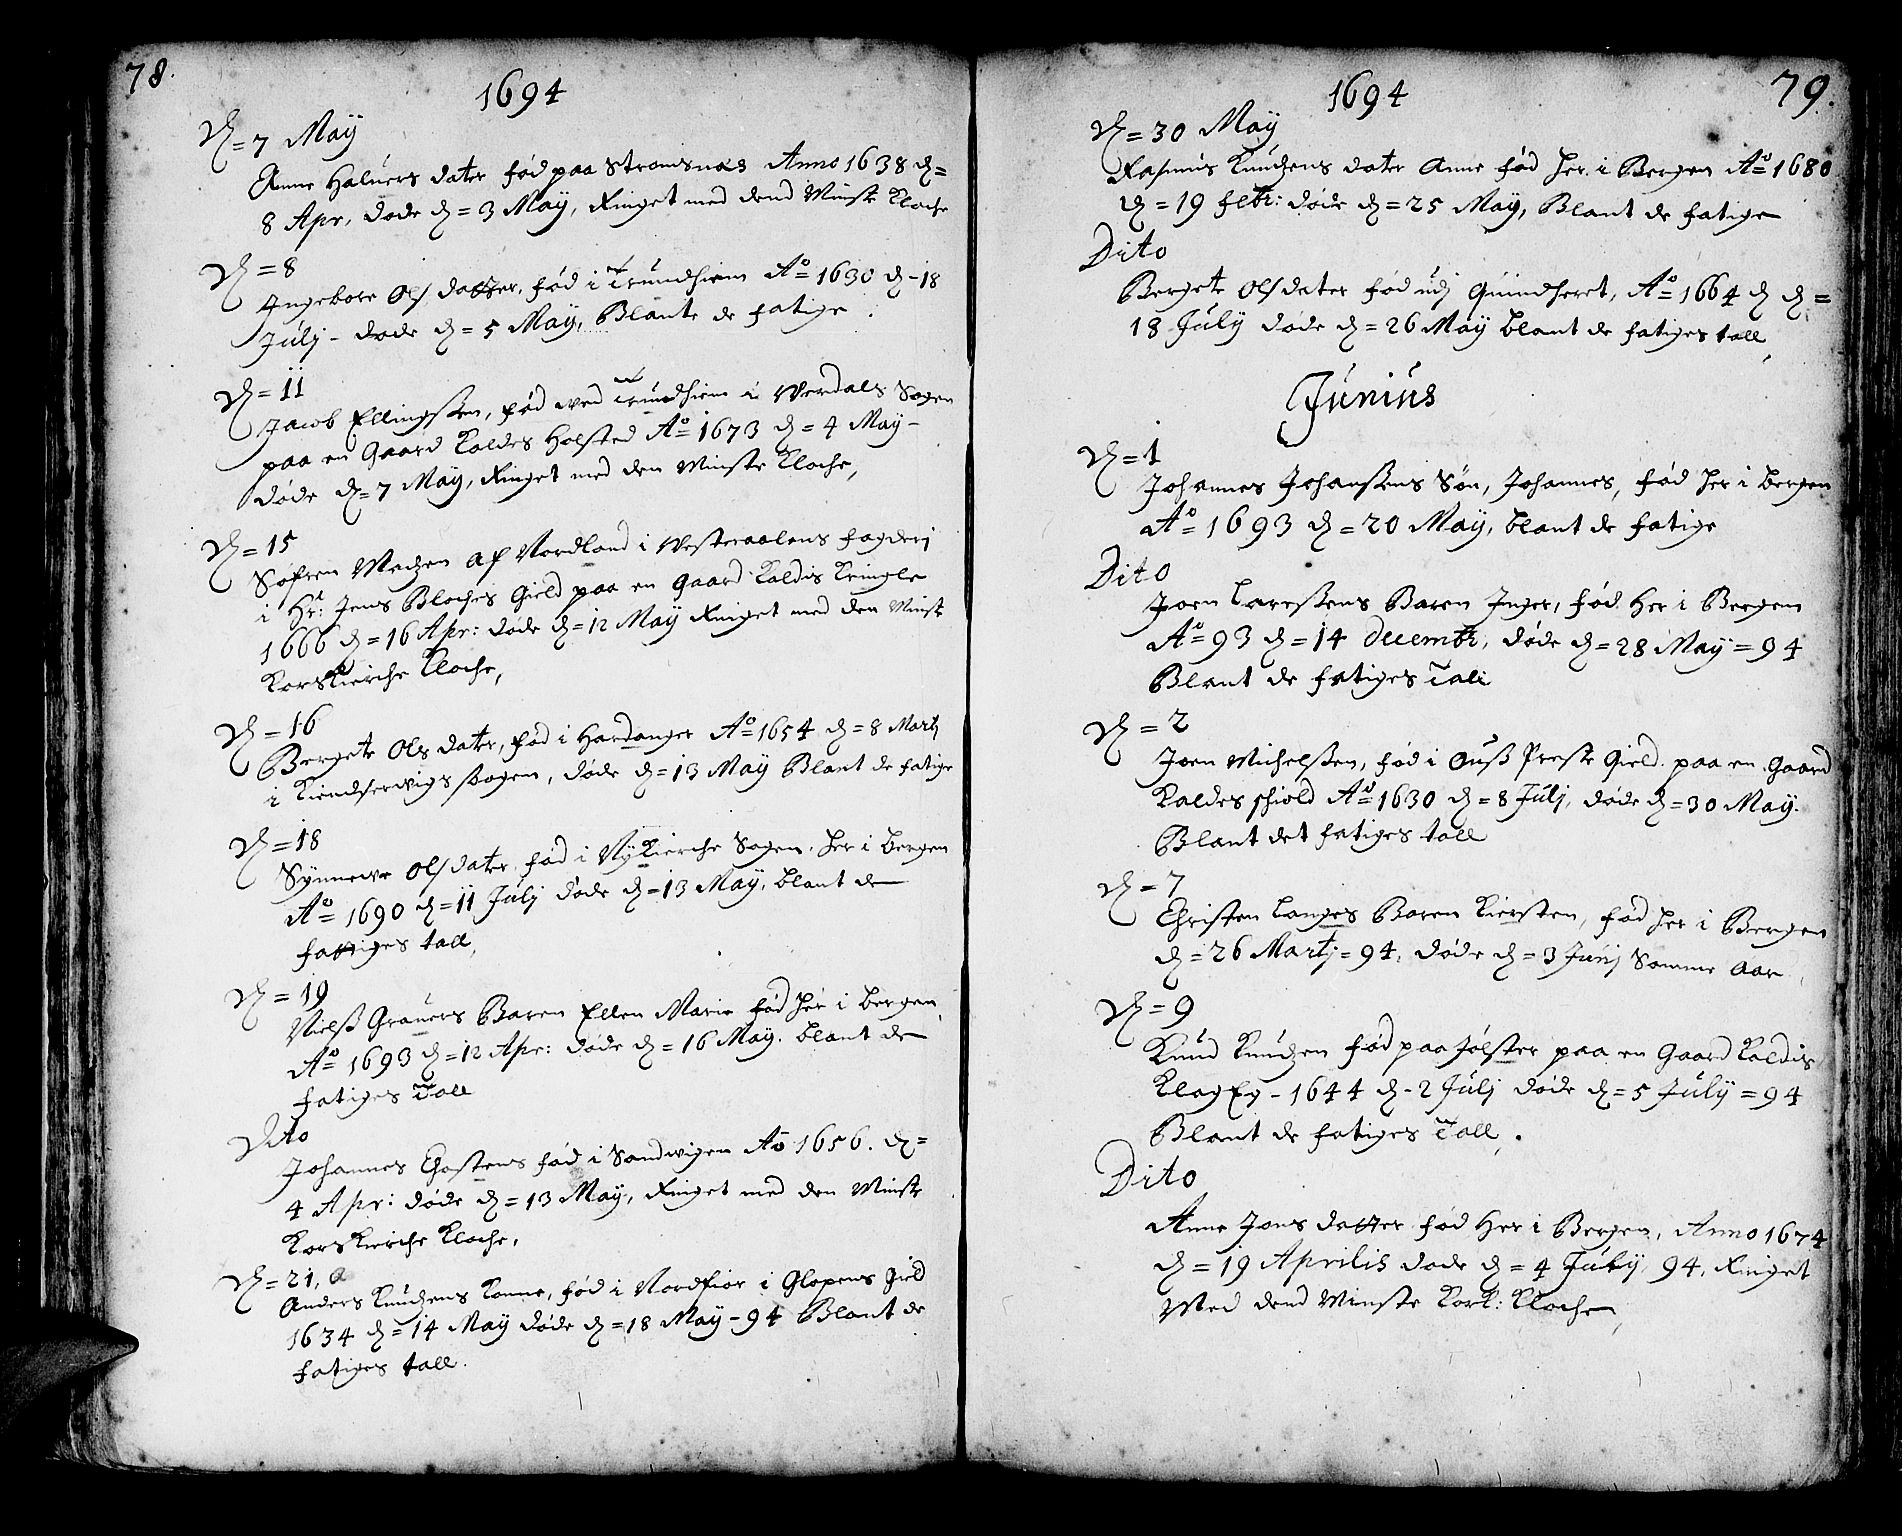 78.
1694
D = 7 Maÿ
Anne Haluers dater fød paa Stromsnæs Anno 1638 d=
8 Apr, døde d=3 Maÿ, Ringet med dend Minste Kloche
D = 8
Ingebore Ols datter, fød i Trundhiem Ao 1630 d-18
Julj - døde d=5 Maÿ, Blante de fatige.
D = 11
Jacob Ellingßen, fød wed Trundhiem i Werdals Sogen
paa en Gaard Kaldes Holsted Ao 1673 d=4 Maÿ-
døde d=7 Maÿ, Ringet med den Minste Kloche,
D = 15
Søfren Madzen af Nordland i Westeraalens fogderj
i Hr: Jens Bloches Gield paa en Gaard Kaldis Kringle
1666 d=16 Apr: døde d=12 Maÿ Ringet med den Minste
Korskierche Kloche,
D = 16
Bergete Ols dater, fød i Hardanger Ao 1654 d=8 Martj
i Kiendserwigs sogen, døde d=13 Maÿ Blant de fatige
D = 18
Synnewe Ols dater fød i Nÿkierche Sogen her i bergen
Ao 1690 d=11 Julj døde d=13 Maÿ, blant de
fattiges tall,
D = 19
Nielß Grauers Baren Ellen Marie fød her i bergen,
Ao 1693 d=12 Apr: døde d=16 Maÿ. blant de
fatiges Tall
Dito
Johannes Chastens fød i Sandwigen Ao 1656. d=
4 Apr: døde d=13 Maÿ, Ringet med den Minste
Korskierche Kloche,
D = 21,
Anders Knudzens Konne, fød i Nordfior i Glopens Gield
1634 d=14 Maÿ døde d=18 Maÿ-94 Blant de
fatiges tall.
1694
79.
D = 30 Maÿ
Rasmus Knudzens dater Anne fød her i Bergen Ao 1680
d=19 febr: døde d=25 Maÿ, Blant de fatige
Dito
Bergete Olsdater fød udj Quindheret, Ao 1664 d d=
18 Julÿ døde d=26 Maÿ blant de fatiges tall,
Junius
D = 1
Johannes Johanßens Søn, Johannes, fød her i bergen
Ao 1693 d=20 Maÿ, blant de fatige
Dito
Joen Larßens Baren Inger, fød Her i Bergen
Ao 93 d=14 decembr, døde d=28 Maÿ=94
Blant de fatiges Tall
D = 2
Joen Michelßen, fød i Ouß Preste Gield paa en Gaard
Kaldes schiold Ao 1630 d=8 Julj, døde d=30 Maÿ.
Blant det fatiges tall
D = 7
Christen Langes Baren Kiersten, fød her i Bergen
d=26 Martj=94, døde d=3 Junj Samme Aar
D = 9
Knud Knudzen fød paa Jølster paa en Gaard Kaldis
KlagEg-1644 d-2 Julj døde d=5 Julÿ=94
Blant de fatiges Tall,.
Dito
Anne Jons datter fød Her i Bergen, Anno 1674
d=19 Aprilis døde d=4 Julÿ, 94, Ringet
Med dend Minste Kork: Kloche,